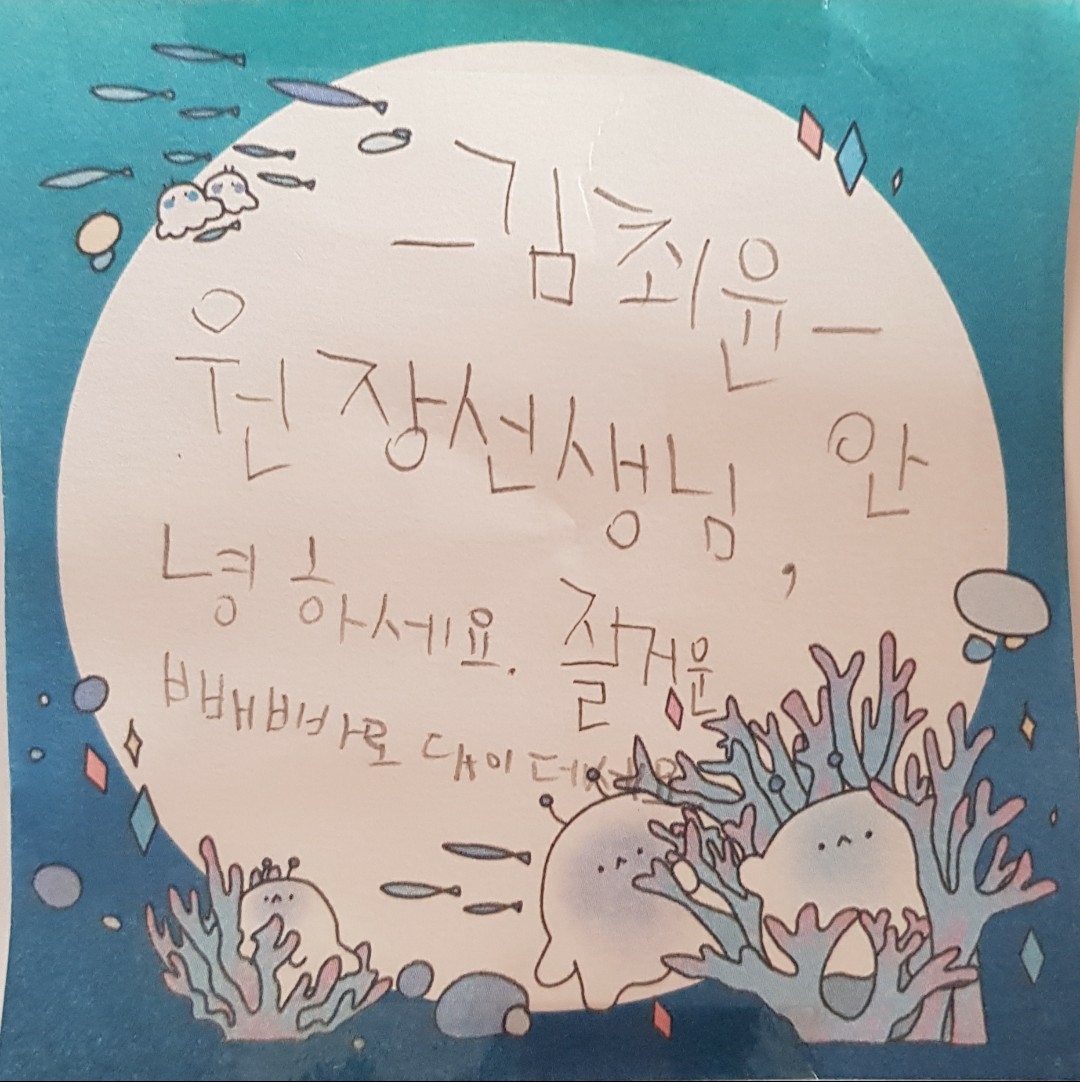 -김최윤-
원장선생님, 안
녕하세요. 잘거운
빼빼바로 대이 데세요